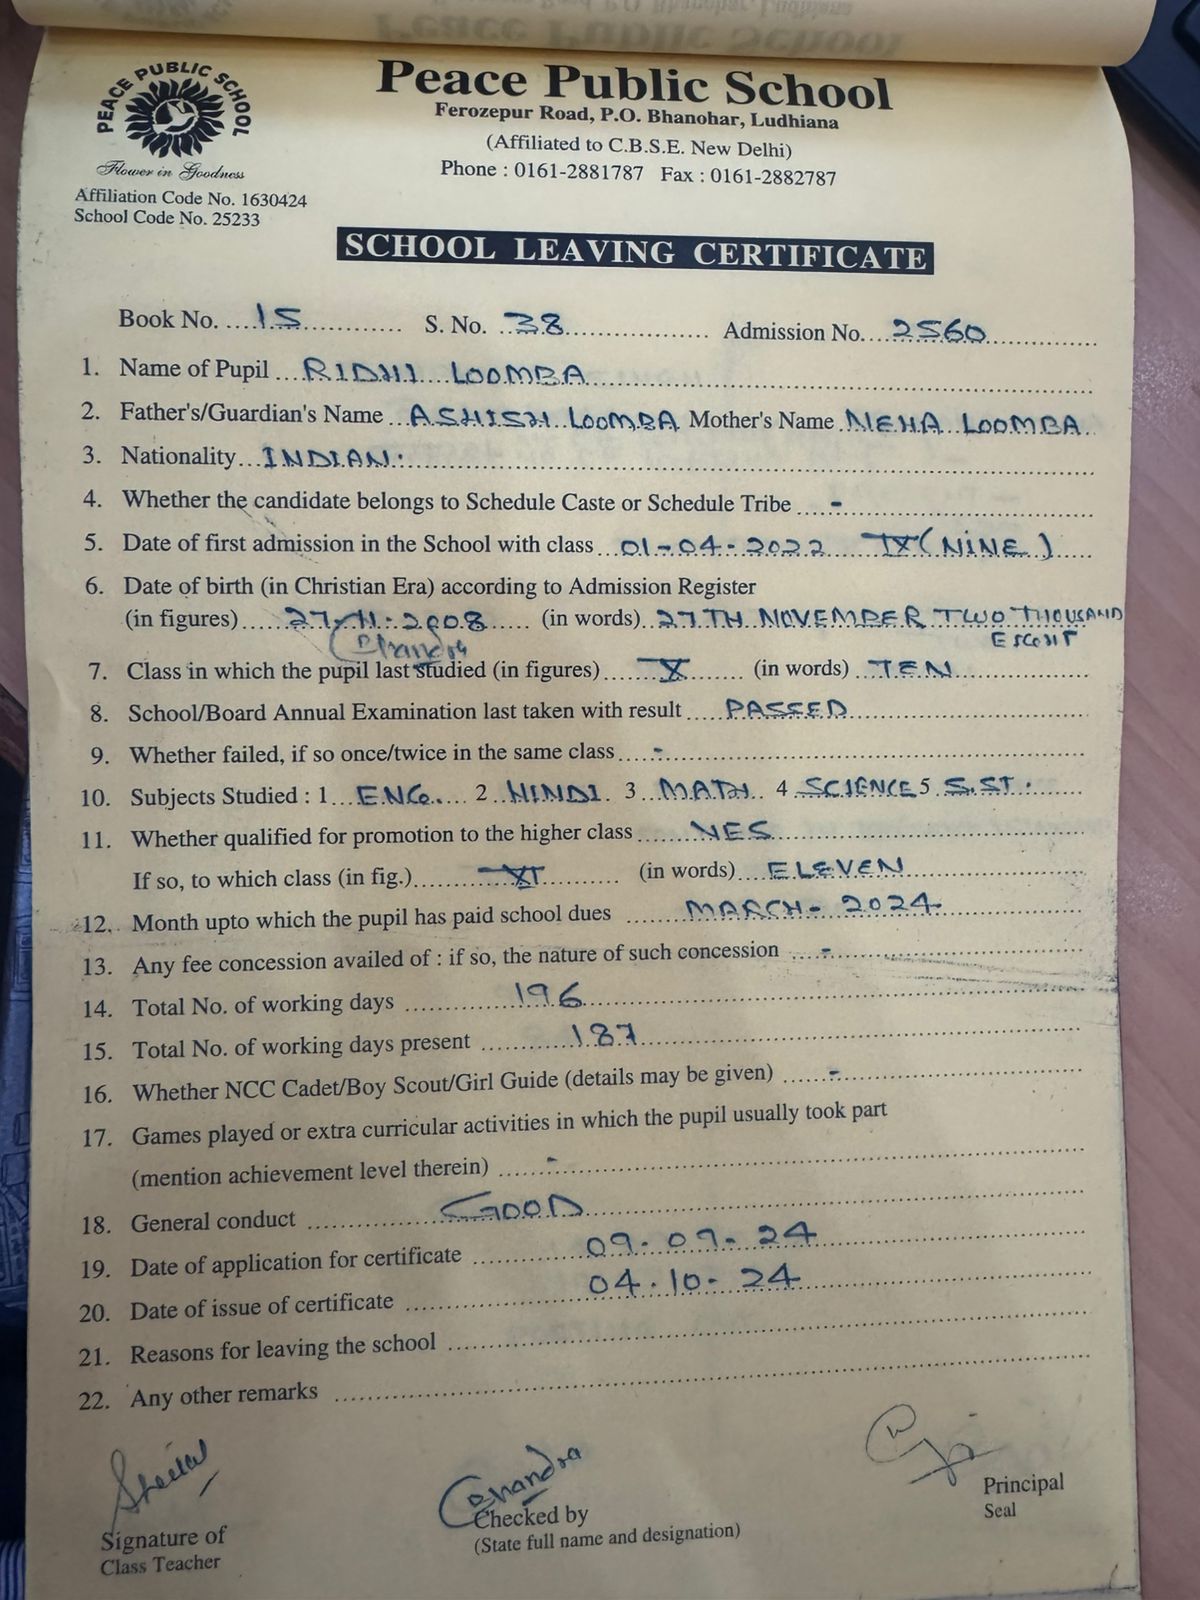 PEACE PUBLIC SCHOOL
Flower in Goodness
Affiliation Code No. 1630424
School Code No. 25233
Peace Public School
Ferozepur Road, P.O. Bhanohar, Ludhiana
(Affiliated to C.B.S.E. New Delhi)
Phone : 0161-2881787 Fax : 0161-2882787
SCHOOL LEAVING CERTIFICATE
Book No. 15 S. No. 38 Admission No. 2560
1. Name of Pupil RIDHI LOOMBA
2. Father's/Guardian's Name ASHISH LOOMBA Mother's Name NEHA LOOMBA
3. Nationality INDIAN.
4. Whether the candidate belongs to Schedule Caste or Schedule Tribe -
5. Date of first admission in the School with class 01-04-2022 IX (NINE)
6. Date of birth (in Christian Era) according to Admission Register
(in figures) 27-11-2008 (in words) 27TH NOVEMBER TWO THOUSAND
EIGHT
Chandra
7. Class in which the pupil last studied (in figures) X (in words) TEN
8. School/Board Annual Examination last taken with result PASSED
9. Whether failed, if so once/twice in the same class -
10. Subjects Studied : 1 ENG. 2 HINDI 3 MATH 4 SCIENCE 5 S.ST.
11. Whether qualified for promotion to the higher class YES
If so, to which class (in fig.) XI (in words) ELEVEN
12. Month upto which the pupil has paid school dues MARCH-2024
13. Any fee concession availed of : if so, the nature of such concession -
14. Total No. of working days 196
15. Total No. of working days present 187
16. Whether NCC Cadet/Boy Scout/Girl Guide (details may be given) -
17. Games played or extra curricular activities in which the pupil usually took part
(mention achievement level therein) -
18. General conduct GOOD
19. Date of application for certificate 09-09-24
20. Date of issue of certificate 04.10-24
21. Reasons for leaving the school
22. Any other remarks
Chandra
Signature of
Class Teacher
Checked by
(State full name and designation)
Principal
Seal